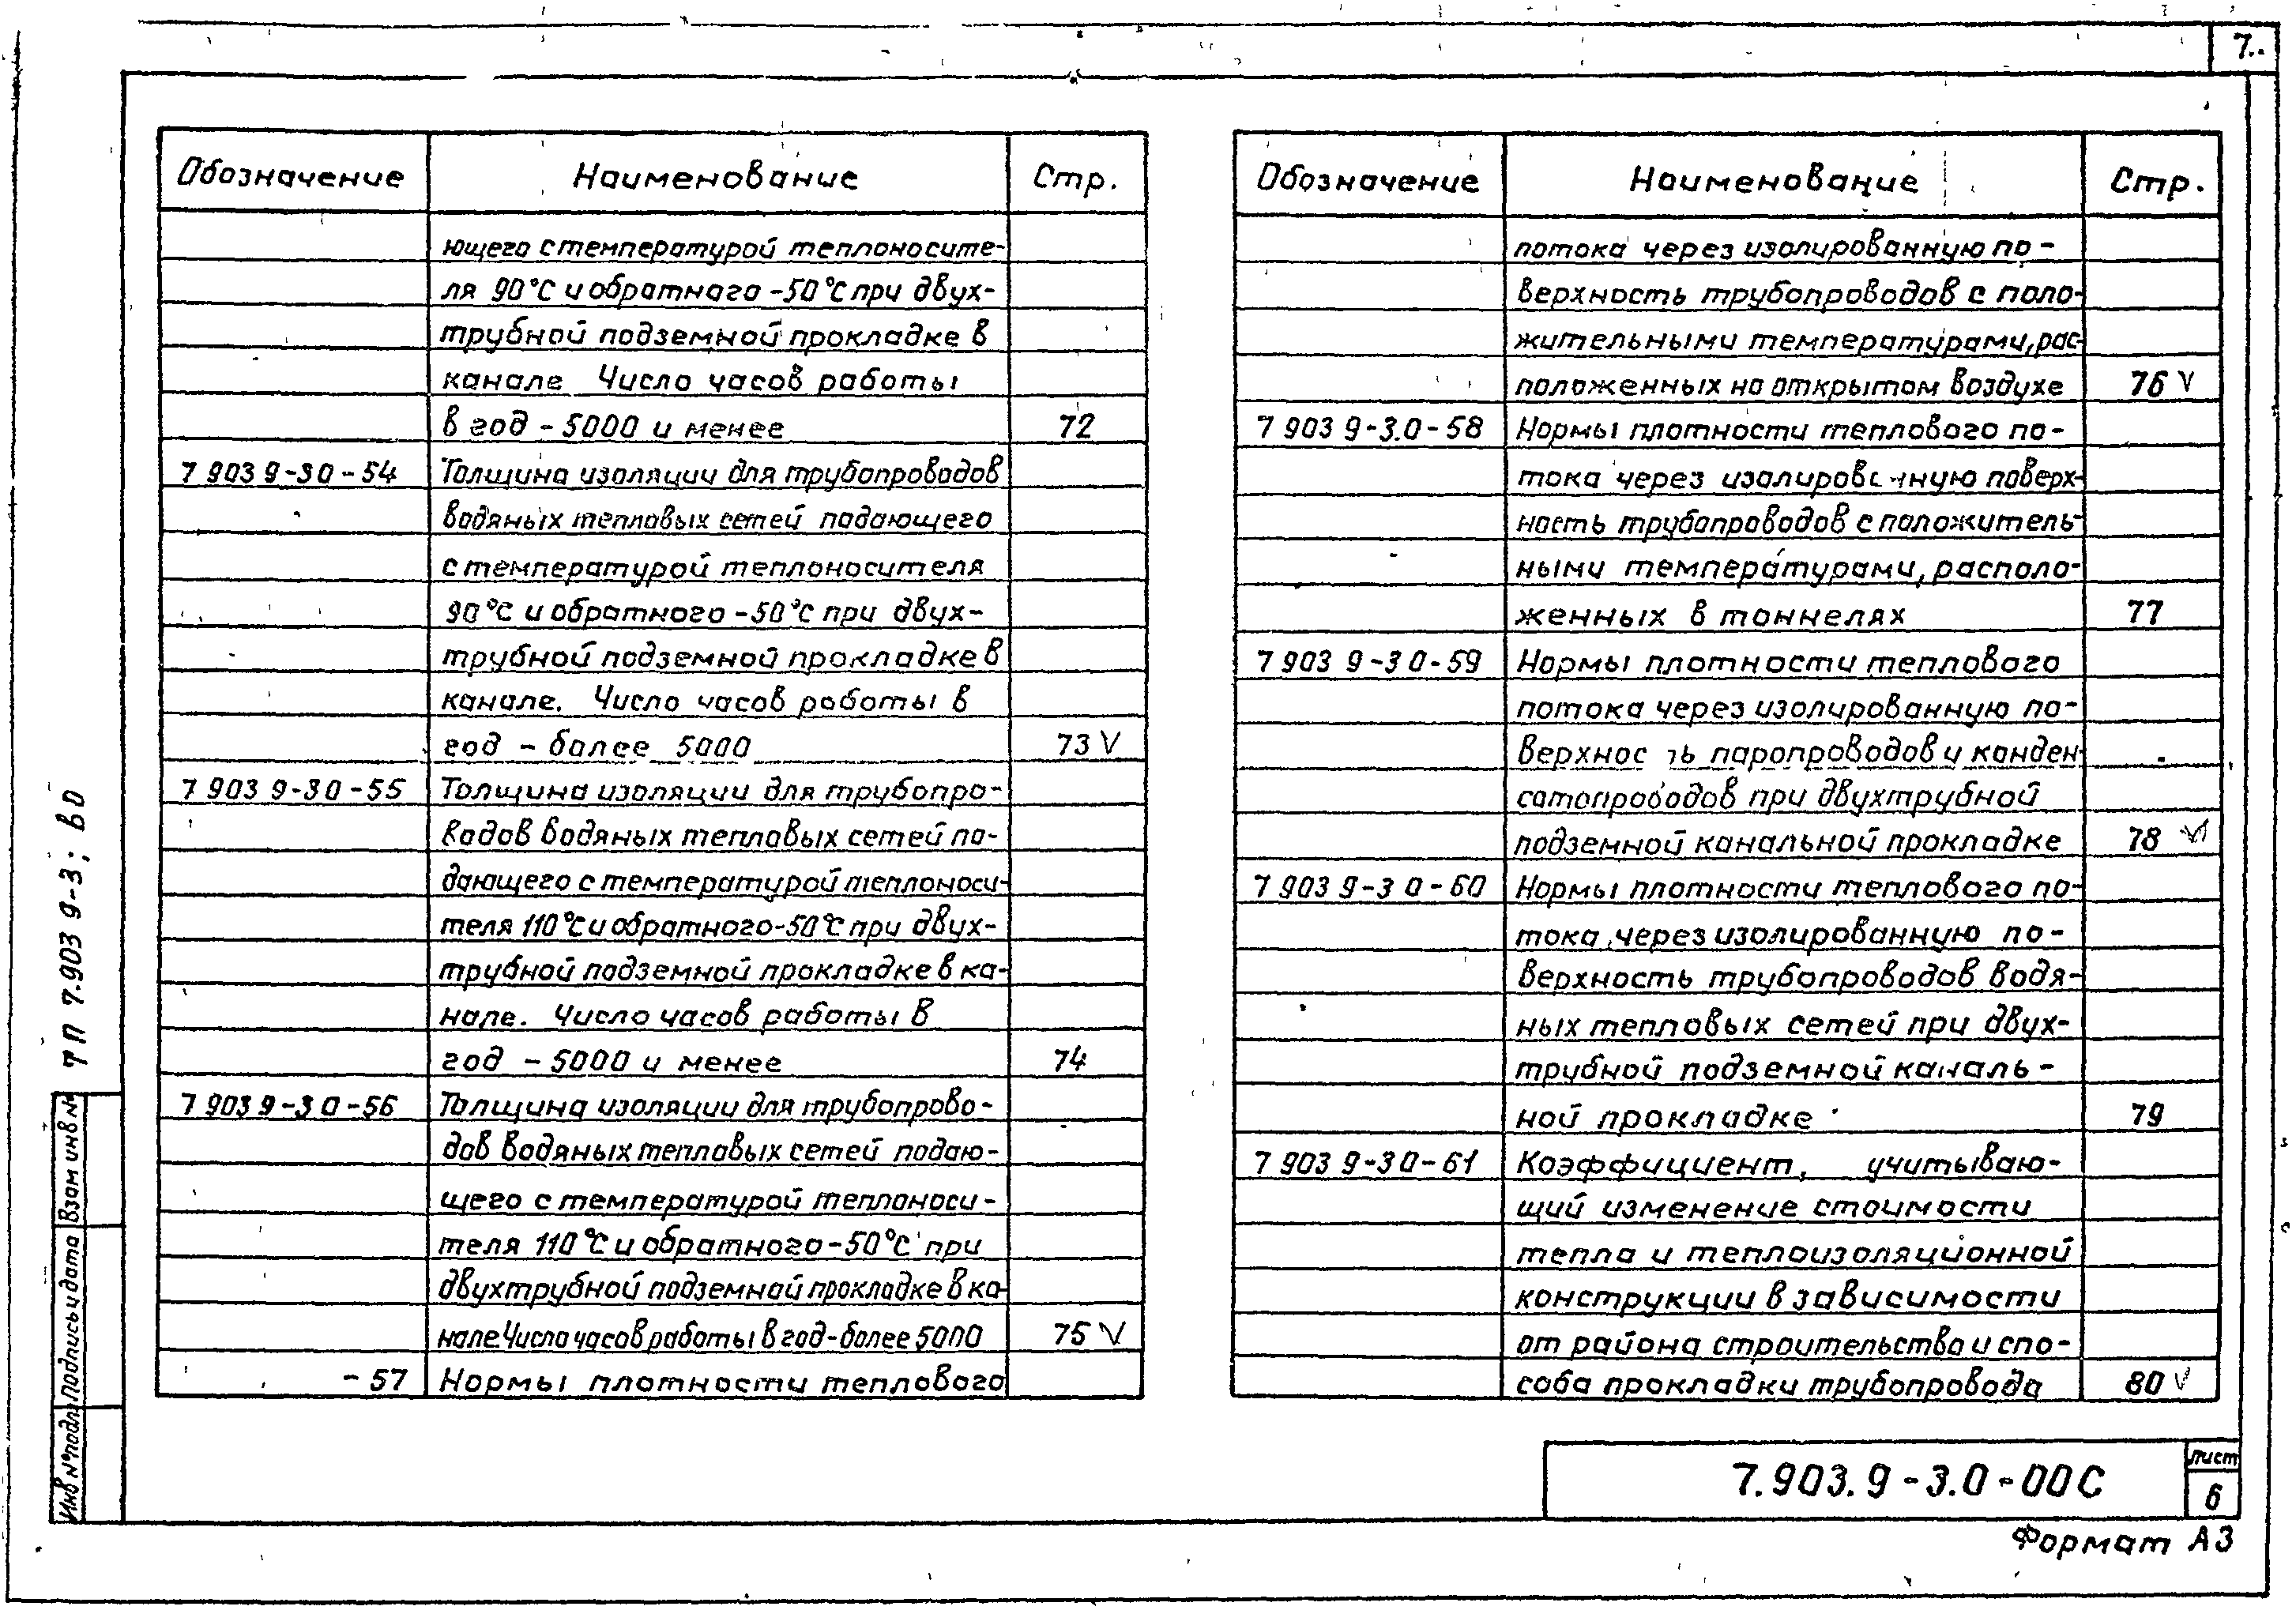 7.
Обозначение Наименование Стр.
ющего с температурой теплоносите-
ля 90°С и обратного -50°С при двух-
трубной подземной прокладке в
канале Число часов работы
в год - 5000 и менее 72
7 903 9-3 0-54 Толщина изоляции для трубопроводов
водяных тепловых сетей подающего
с температурой теплоносителя
90°С и обратного -50°С при двух-
трубной подземной прокладке в
канале. Число часов работы в
год - более 5000 73 V
7 903 9-3 0-55 Толщина изоляции для трубопро-
водов водяных тепловых сетей по-
дающего с температурой теплоноси-
теля 110°С и обратного-50°С при двух-
трубной подземной прокладке в ка-
нале. Число часов работы в
год - 5000 и менее 74
7 903 9-3 0-56 Толщина изоляции для трубопрово-
дов водяных тепловых сетей подаю-
щего с температурой теплоноси-
теля 110°С и обратного-50°С при
двухтрубной подземной прокладке в ка-
нале Число часов работы в год-более 5000 75 V
-57 Нормы плотности теплового
Обозначение Наименование Стр.
потока через изолированную по-
верхность трубопроводов с поло-
жительными температурами, рас-
положенных на открытом воздухе 76 V
7 903 9-3.0-58 Нормы плотности теплового по-
тока через изолированную поверх-
ность трубопроводов с положитель-
ными температурами, располо-
женных в тоннелях 77
7 903 9-3 0-59 Нормы плотности теплового
потока через изолированную по-
верхность паропроводов и конден-
сатопроводов при двухтрубной
подземной канальной прокладке 78 V
7 903 9-3 0-60 Нормы плотности теплового по-
тока через изолированную по-
верхность трубопроводов водя-
ных тепловых сетей при двух-
трубной подземной каналь-
ной прокладке 79
7 903 9-3 0-61 Коэффициент, учитываю-
щий изменение стоимости
тепла и теплоизоляционной
конструкции в зависимости
от района строительства и спо-
соба прокладки трубопровода 80 V
ТП 7.903 9-3; в 0
Взам инв №
Подпись и дата
Инв № подл
7.903.9-3.0-00С
Лист
6
Формат А3